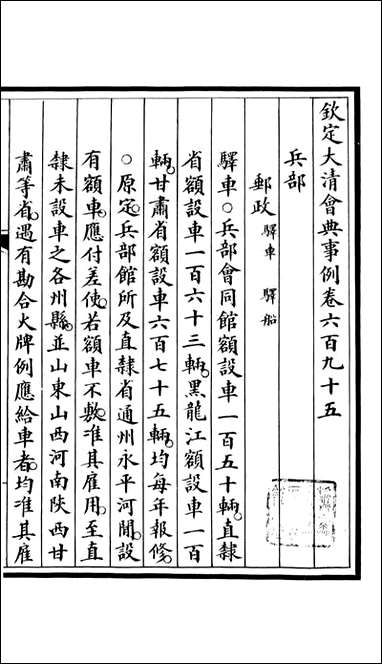 欽定大清會典事例卷六百九十五
兵部
郵政 驛車 驛船
驛車○兵部會同館額設車一百五十輛。直隸
省額設車一百六十三輛。黑龍江額設車一百
輛。甘肅省額設車六百七十五輛。均每年報修。
○原定。兵部館所及直隸省通州永平河間。設
有額車。應付差使。若額車不敷。准其雇用。至直
隸未設車之各州縣。並山東山西河南陝西甘
肅等省。遇有勘合火牌例應給車者。均准其雇